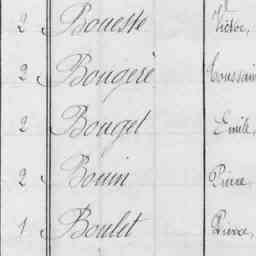 2 Boueste Victor,
2 Bougeré Toussain
2 Bouget Emile,
2 Bouin Pierre,
1 Boulet Pierre,